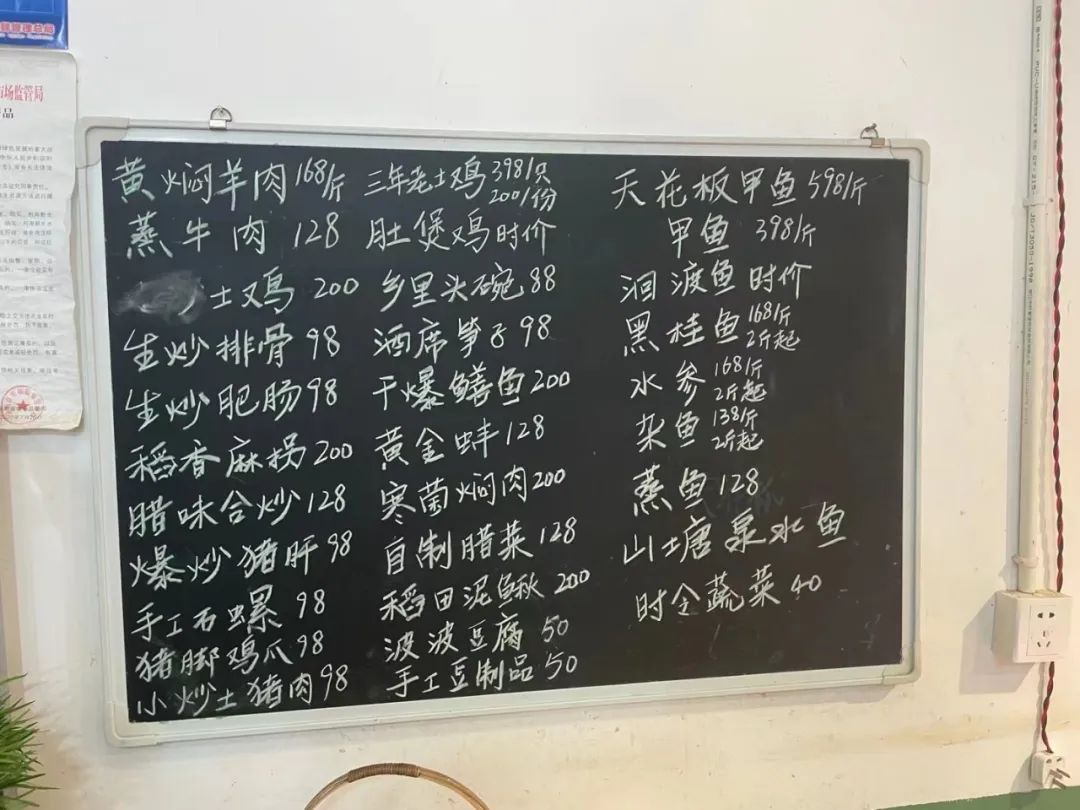 场监管局
品
黄焖羊肉 168/斤
蒸牛肉 128
土双鸡 200
生炒排骨 98
生炒肥肠 98
稻香麻拐 200
腊味合炒 128
爆炒猪肝 98
手工石螺 98
猪脚鸡爪 98
小炒土猪肉 98
三年老土鸡 398/只
200/份
肚煲鸡 时价
乡里头碗 88
酒席笋子 98
干爆鳝鱼 200
黄金蚌 128
寒菌焖肉 200
自制腊菜 128
稻田泥鳅 200
波波豆腐 50
手工豆制品 50
天花板甲鱼 598/斤
甲鱼 398/斤
洄渡鱼 时价
黑桂鱼 168/斤
2斤起
水参 168/斤
2斤起
杂鱼 138/斤
2斤起
蒸鱼 128
山塘泉水鱼
时令蔬菜 40